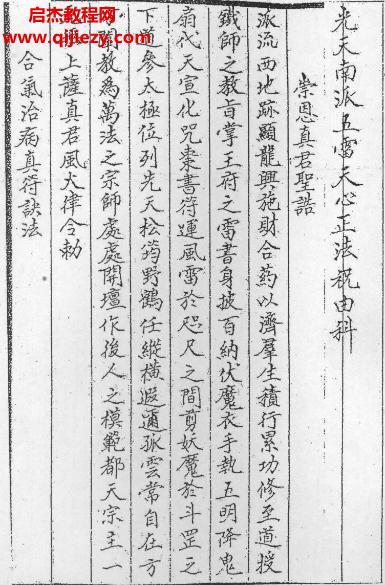 启杰教程网
www.qijiezy.com
先天南派五雷天心正法祝由科
崇恩真君聖誥
派流西地跡顯龍興施財合葯以濟羣生積行累功修至道授
鐵師之教旨掌王府之雷書身披百納伏魔衣手執五明降鬼
扇代天宣化咒棗書符運風雷於咫尺之間剪妖魔於斗罡之
下道參太極位列先天松筠野鶴任縱橫遐邇孤雲常自在方
闡教為萬法之宗師處處開壇作後人之模範都天宗主一
上薩真君風火律令勅
合氣治病真符訣法